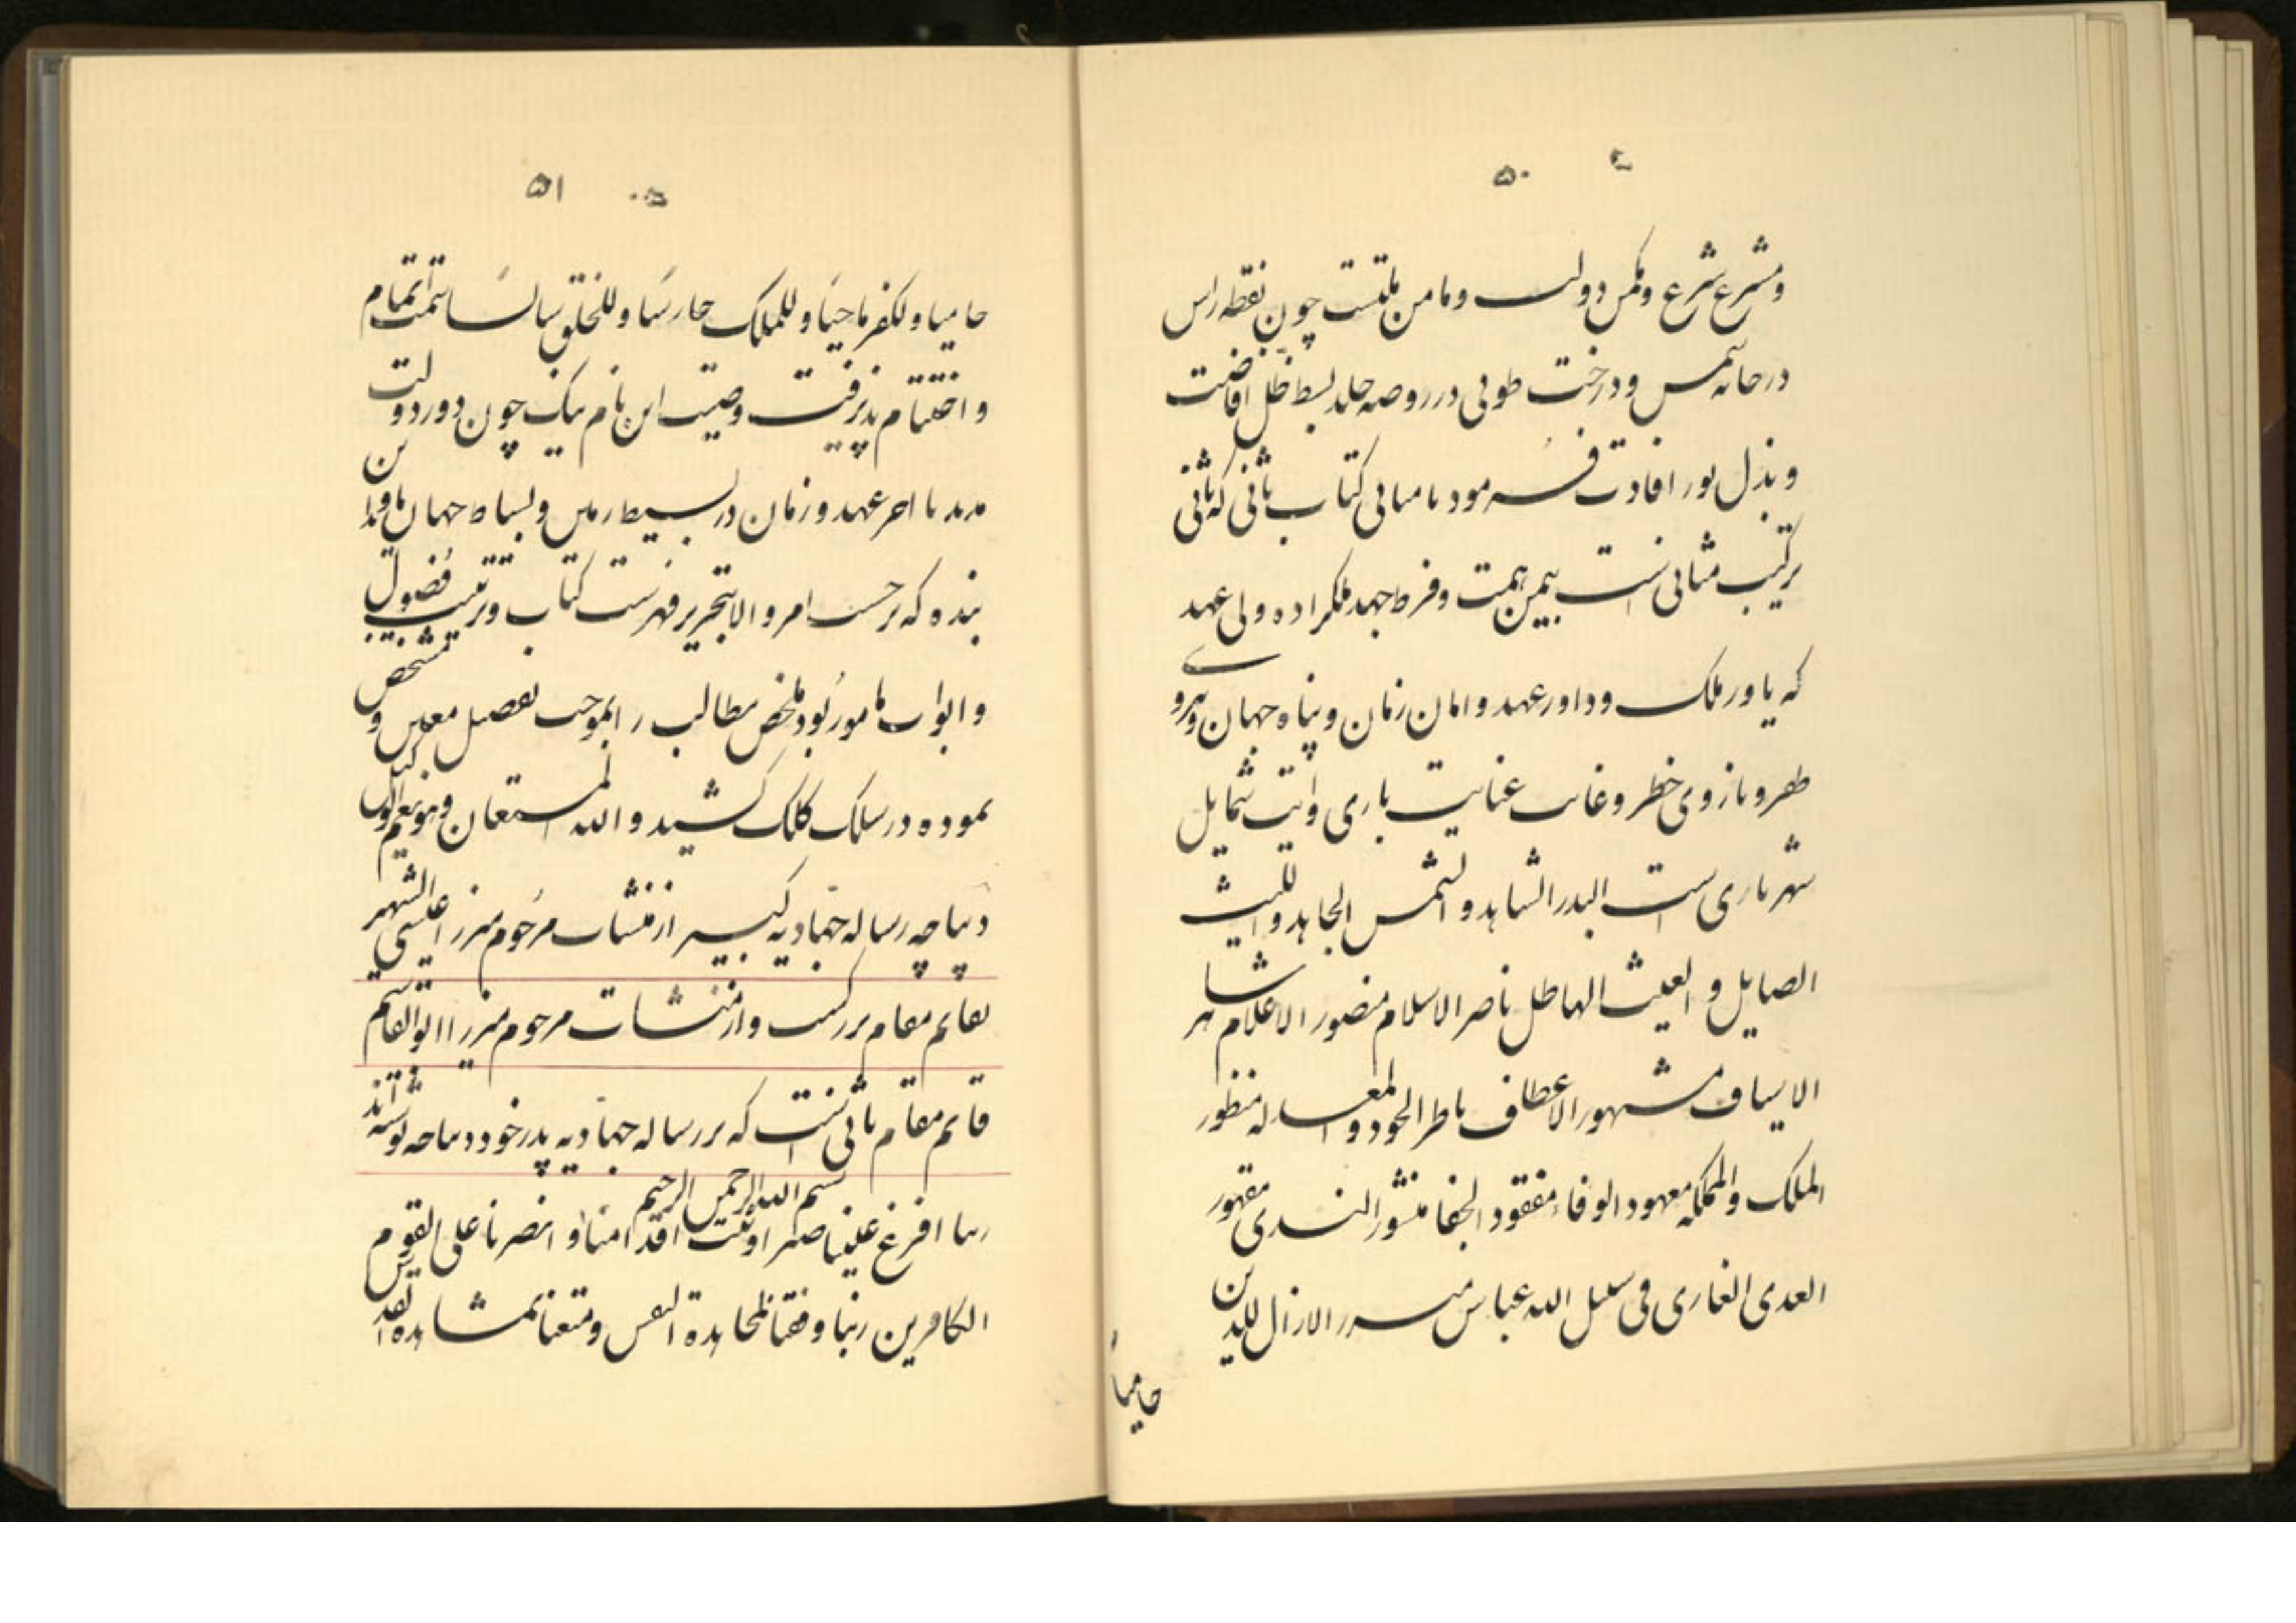 ۵۰
ومشرع شرع ومکمن دولت ومامن ملتست چون نقطه راس
درخانه شمس ودرخت طوبی در روضه خلد بسط ظل افاضت
وبذل نور افادت فرمود تا مبانی کتاب ثانی که ثانی
ترکیب مثانی است بیمن همت وفرط جهد ملکزاده ولی عهد
که یاور ملک وداور عهد وامان زمان وپناه جهان ونیروی
ظفر وبازوی خطر وغایت عنایت باری وآیت شمایل
شهریاری است البدر الشاهد والشمس الجاهد واللیث
الصایل والغیث الهاطل ناصر الاسلام منصور الاعلام شاهر
الاسیاف مشهور الاعطاف ناظر الجود والمعدله منظور
الملک والمملکه معهود الوفاء مفقود الجفا منشور الندی مقهور
العدی الغازی فی سبیل الله عباس میرزا لازال للدین
حامیاً
۵۱
حامیا وللکفر ماحیا وللملک حارسا وللخلق سائسا سمت اتمام
واختتام پذیرفت وصیت این نام نیک چون دور دولت
بنده که برحسب امر والا بتحریر فهرست کتاب وترتیب فصول
وابواب مامور بود ملخص مطالب را بموجب تفصیل معین ومشخص
نموده در سلک کلک کشید والله المستعان وهو نعم الوکیل
دیباچه رساله جهادیه کبیر از منشات مرحوم میرزا عیسی الشهیر
بقایم مقام بزرگست واز منشات مرحوم میرزا ابوالقاسم
قایم مقام ثانی است که بر رساله جهادیه پدر خود دیباچه نوشته‌اند
بسم الله الرحمن الرحیم
ربنا افرغ علینا صبرا وثبت اقدامنا وانصرنا علی القوم
الکافرین ربنا وفقنا لمجاهدة النفس ومتعنا بمشاهدة